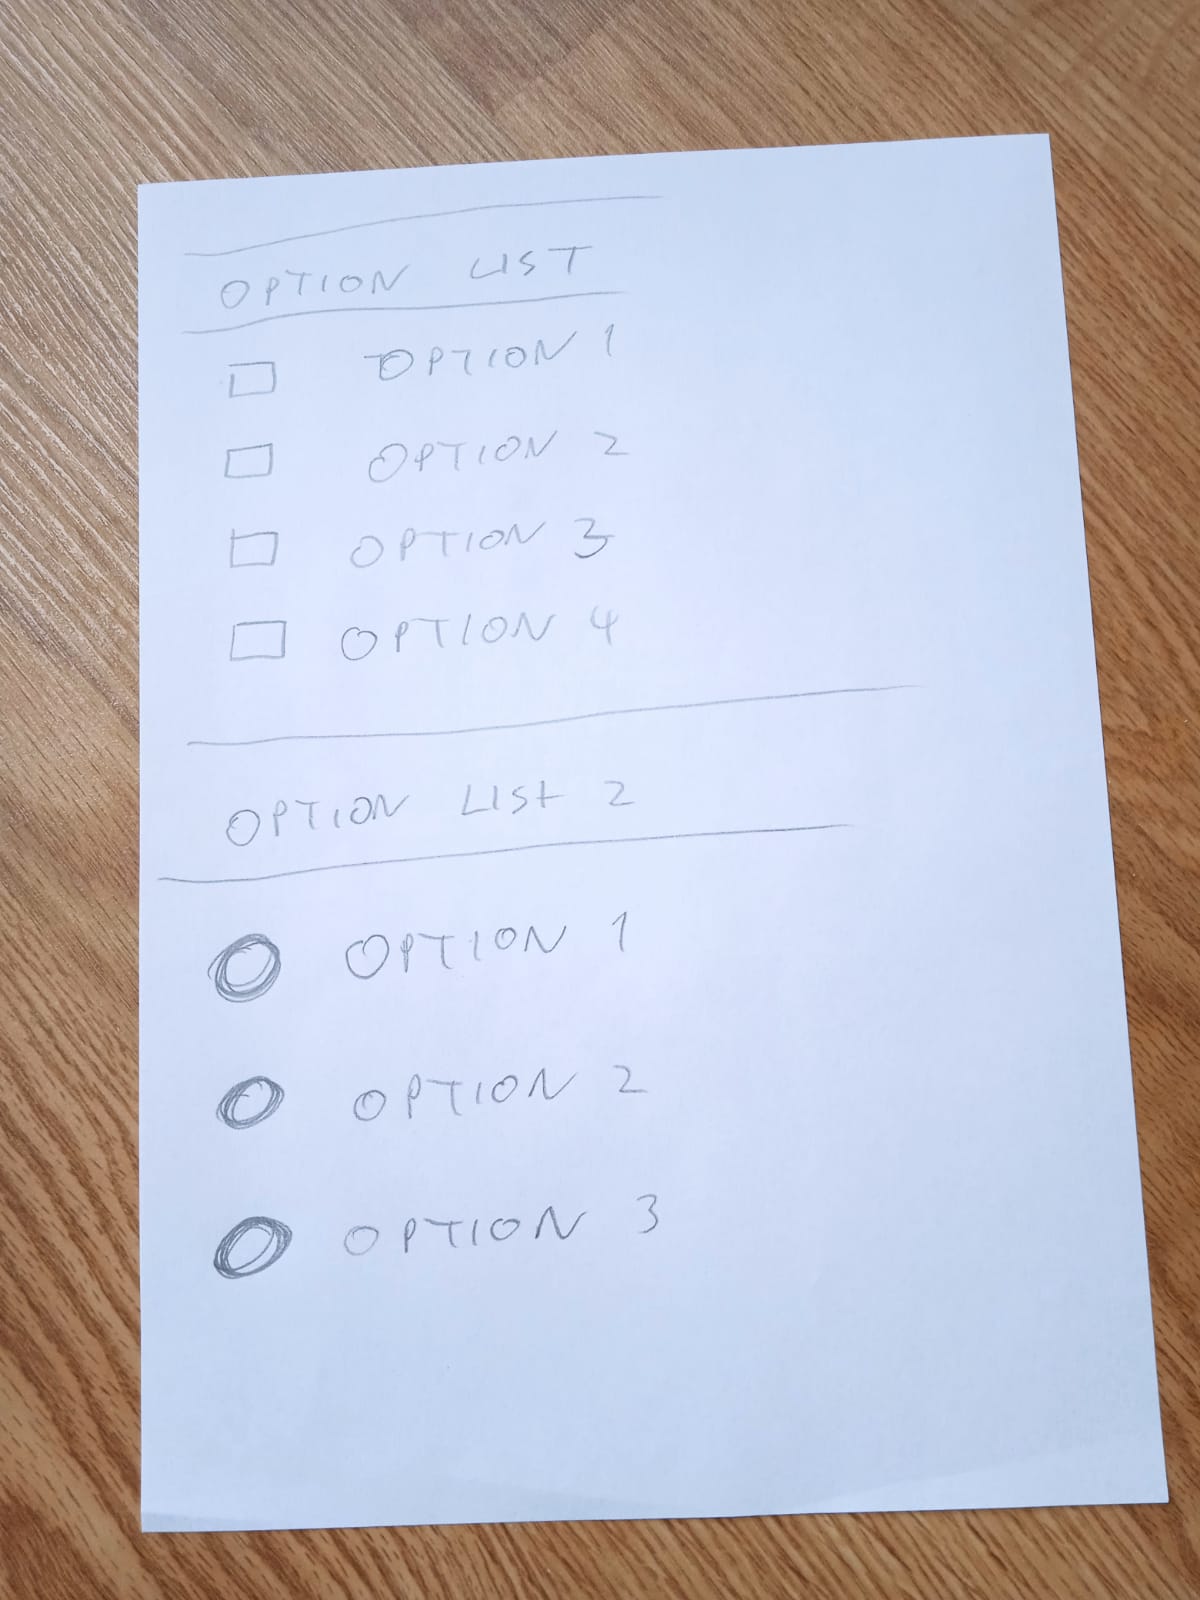 OPTION LIST
OPTION 1
OPTION 2
OPTION 3
OPTION 4
OPTION LISt 2
OPTION 1
OPTION 2
OPTION 3